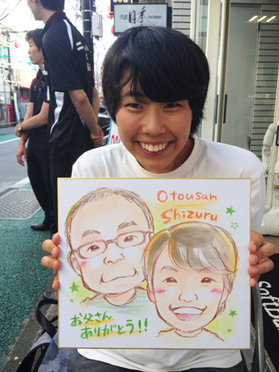 Otousan
Shizuru
お父さん
ありがとう!!